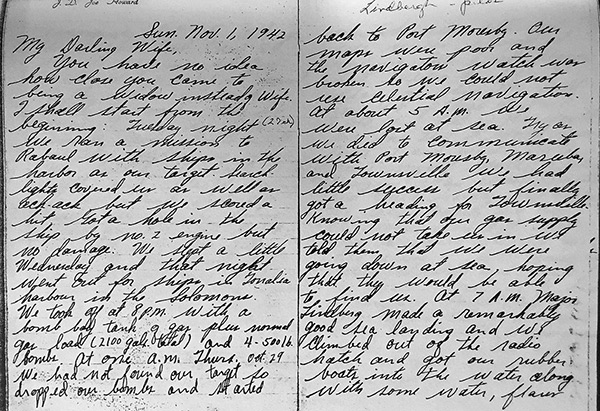 J. D. Joe Howard
Sun. Nov. 1, 1942
My Darling Wife,
You have no idea
how close you came to
being a widow instead of wife.
I shall start from the
begining: Tuesday night (27th)
We ran a mission to
Rabaul with ships in the
harbor as our target search-
lights covered us as well as
ack-ack but we scored a
hit. Got a hole in the
ship by no. 2 engine but
no damage. We slept a little
Wednesday and that night
went out for ships in Tonalia
harbour in the Solomons
We took off at 8 P.M. with a
bomb bay tank of gas plus normal
gas load (2100 gals. total) and 4-500 lb
bombs. At one a.m. Thurs. Oct. 29
We had not found our target so
dropped our bombs and started
Lindbergh - pilot
back to Port Moresby. Our
maps were poor and
the navigators watch was
broken so we could not
use celestial navigation.
At about 5 A.M. we
were lost at sea. Try as
we did to communicate
with Port Moresby, Mareeba,
and Townsville we had
little success but finally
got a heading for Townsville.
Knowing that our gas supply
could not take us in we
told them that we were
going down at sea, hoping
that they would be able
to find us. At 7 A.M. Major
Lindberg made a remarkably
good sea landing and we
climbed out of the radio
hatch and got our rubber
boats into the water along
with some water, flares